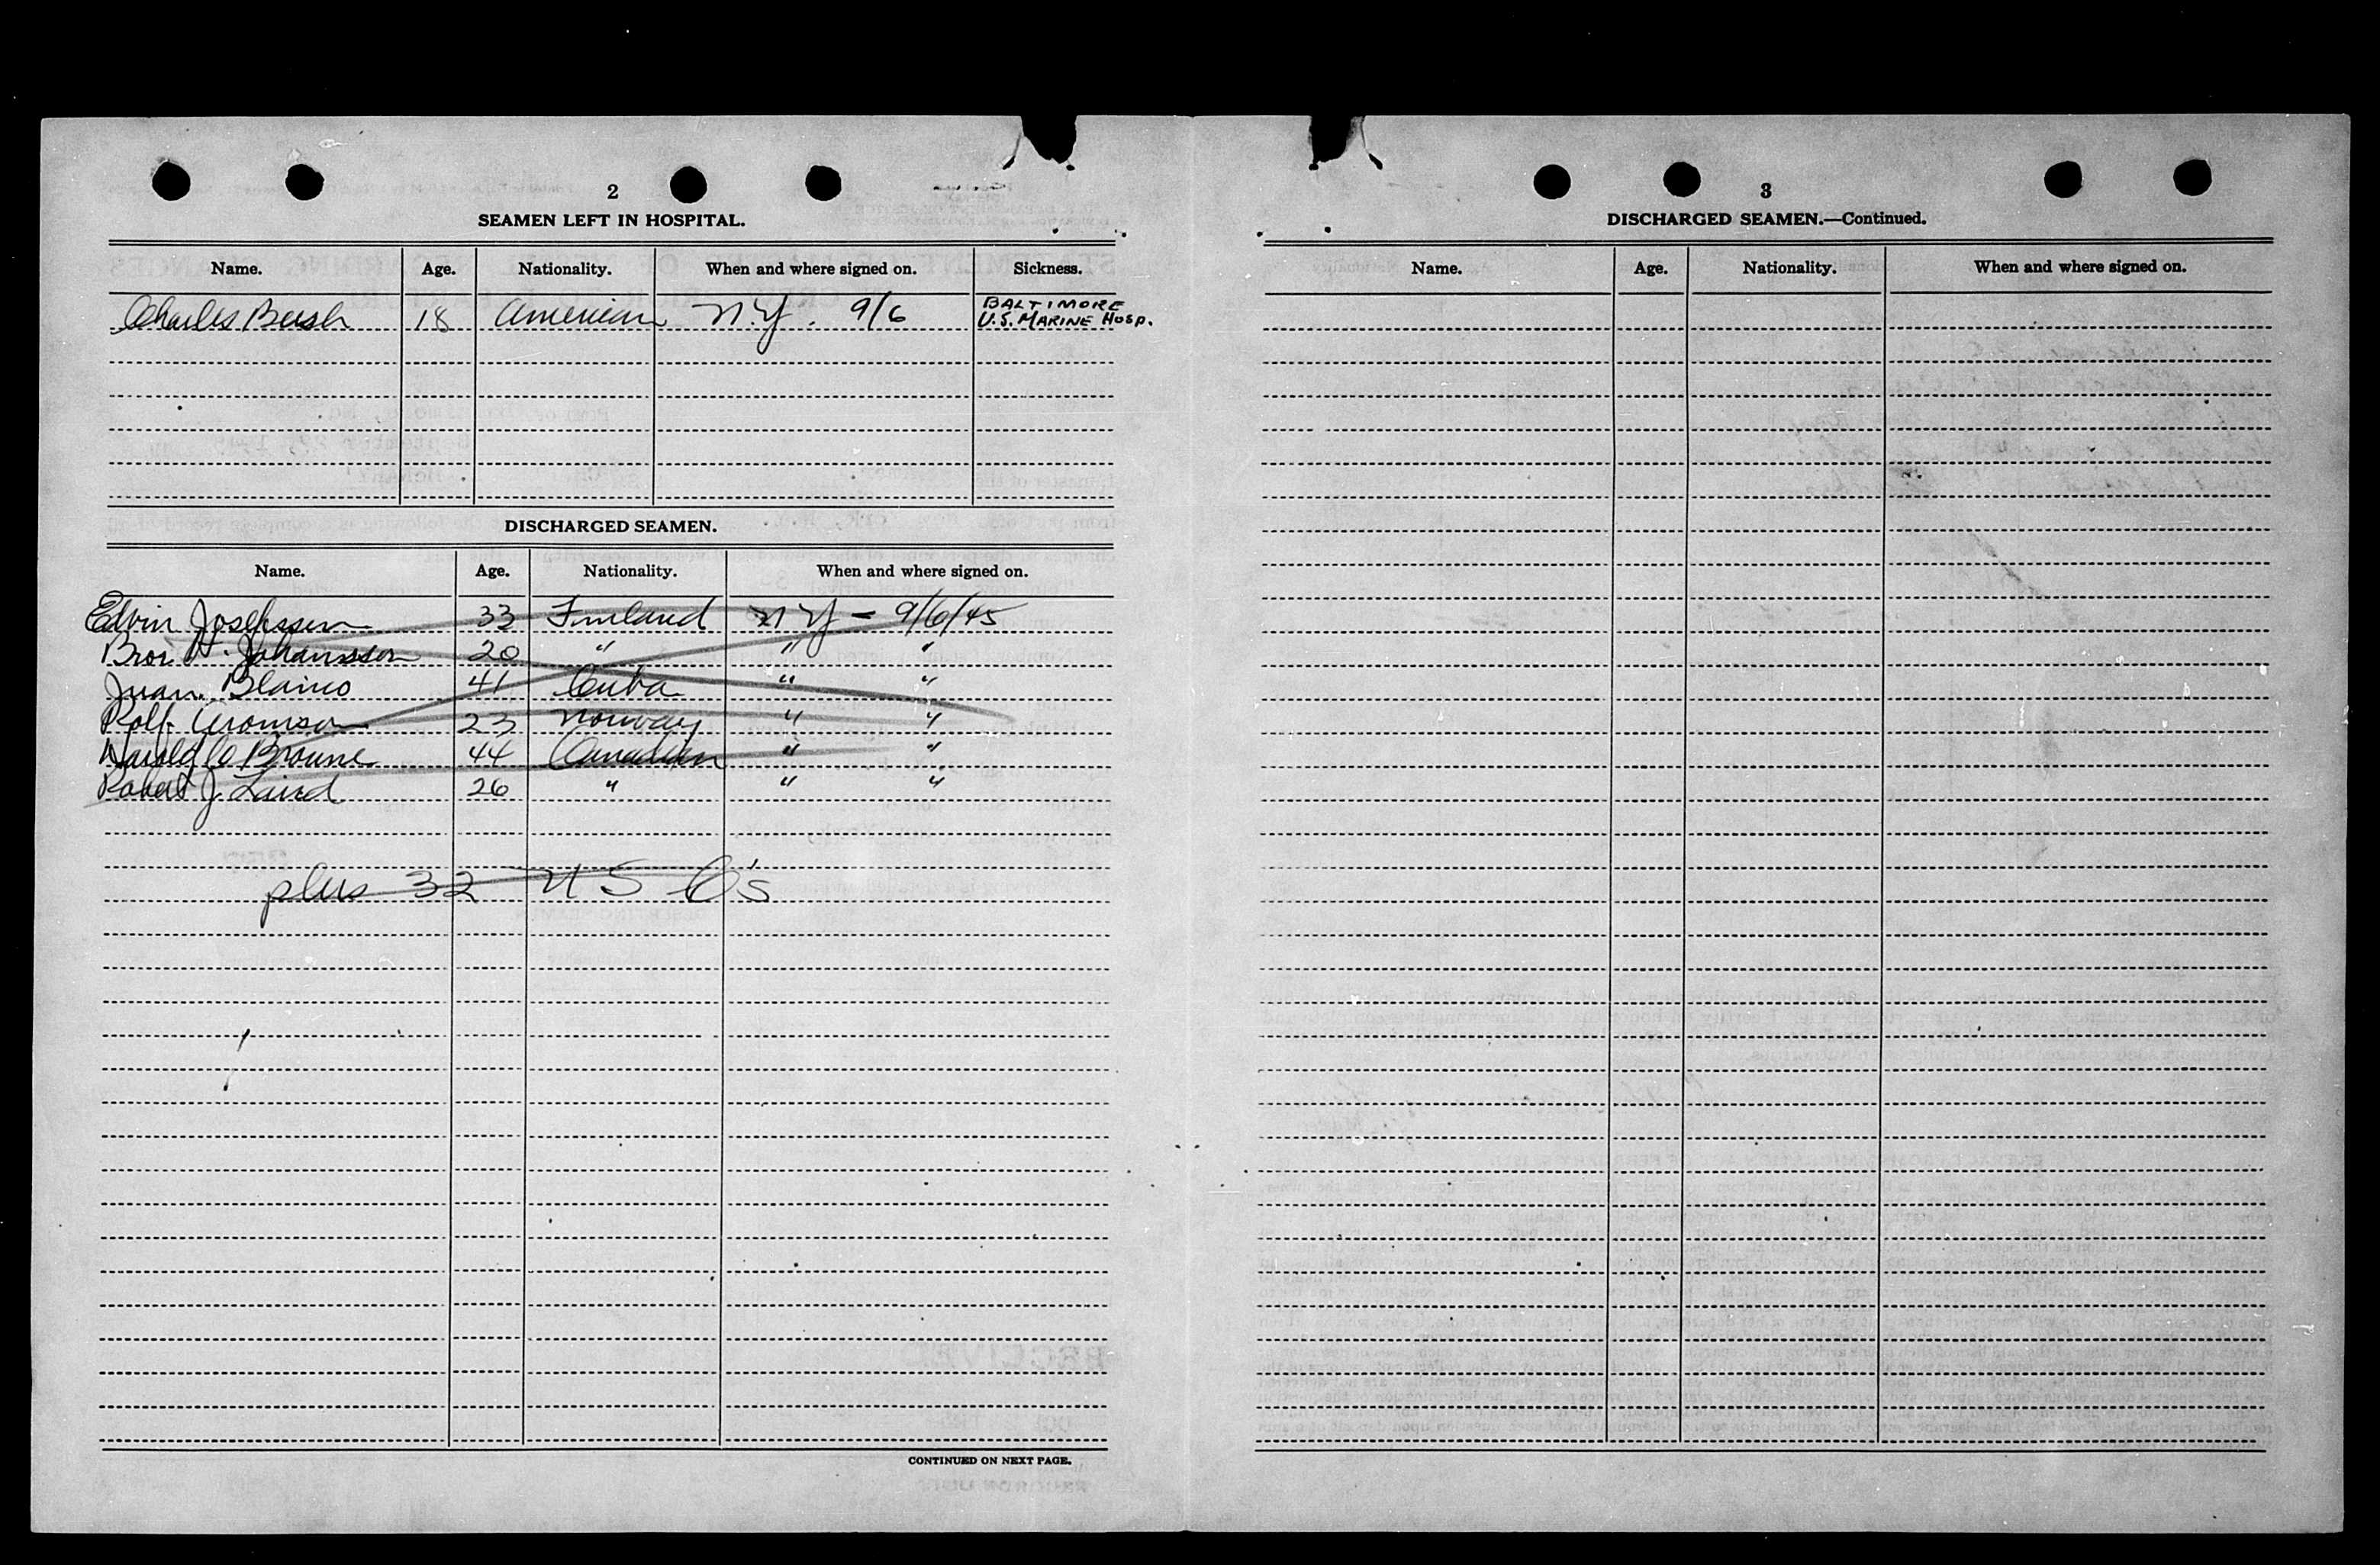 2
SEAMEN LEFT IN HOSPITAL.
Name. Age. Nationality. When and where signed on. Sickness.
Charles Bush 18 American N.Y. 9/6 BALTIMORE
U.S. MARINE HOSP.
DISCHARGED SEAMEN.
Name. Age. Nationality. When and where signed on.
Edvin Josefsson 33 Finland NY - 9/6/45
Bror Johansson 20 " " "
Juan Blanco 41 Cuba " "
Rolf 23 Norway " "
Harold C Browne 44 Canadian " "
Robert J. Laird 26 " " "
plus 32 US C's
CONTINUED ON NEXT PAGE.
3
DISCHARGED SEAMEN.—Continued.
Name. Age. Nationality. When and where signed on.